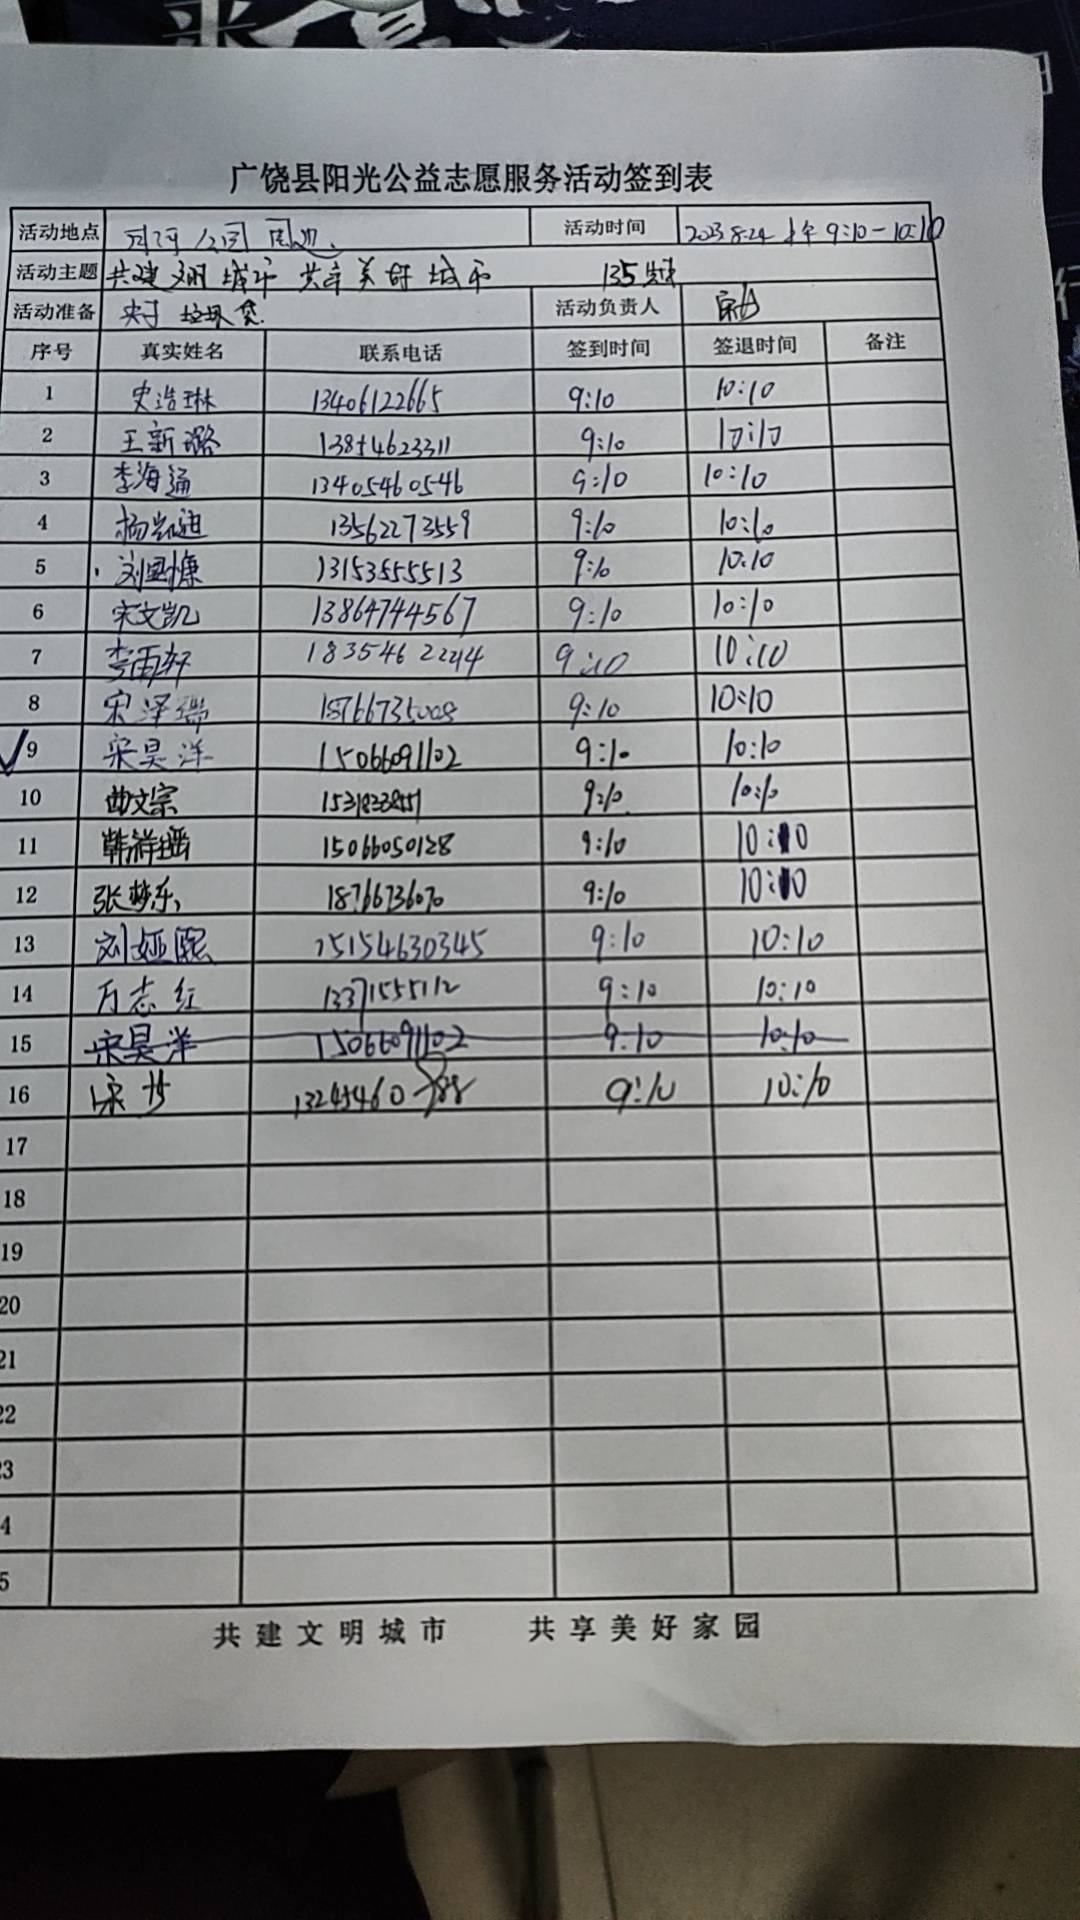 广饶县阳光公益志愿服务活动签到表
活动地点 公园 周边 活动时间 2023 8.24 上午 9:10-10:10
活动主题 共建文明城市 共享美好城市
活动准备 夹子 垃圾袋 活动负责人
序号 真实姓名 联系电话 签到时间 签退时间 备注
1 史浩琳 13406122665 9:10 10:10
2 王新璐 13854623311 9:10 10:10
3 李海通 13405460546 9:10 10:10
4 杨凯迪 13562273559 9:10 10:10
5 刘国慷 13153555513 9:10 10:10
6 宋文凯 13864744567 9:10 10:10
7 李雨轩 9:10 10:10
8 宋泽瑞 18766735008 9:10 10:10
9 宋昊洋 15066091102 9:10 10:10
10 曲文宗 9:10 10:10
11 韩祥瑶 15066050128 9:10 10:10
12 张梦乐 18766736070 9:10 10:10
13 刘娅熙 15154630345 9:10 10:10
14 万志红 13371555112 9:10 10:10
15 宋昊洋 15066091102 9:10 10:10
16 宋 9:10 10:10
17
18
19
20
21
22
23
4
5
共建文明城市 共享美好家园